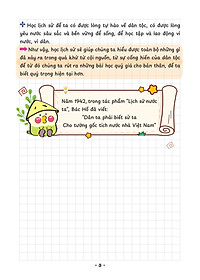 Học lịch sử để ta có được lòng tự hào về dân tộc, có được lòng
yêu nước sâu sắc và bền vững để sống, để học tập và lao động vì
nước, vì dân.
Như vậy, học lịch sử sẽ giúp chúng ta hiểu được toàn bộ những gì
đã xảy ra trong quá khứ từ cội nguồn, từ sự cống hiến của dân tộc
để từ đó chúng ta rút ra những bài học quý giá cho bản thân, để ta
biết quý trọng hiện tại hơn.
Năm 1942, trong tác phẩm "Lịch sử nước
ta", Bác Hồ đã viết:
"Dân ta phải biết sử ta
Cho tường gốc tích nước nhà Việt Nam"